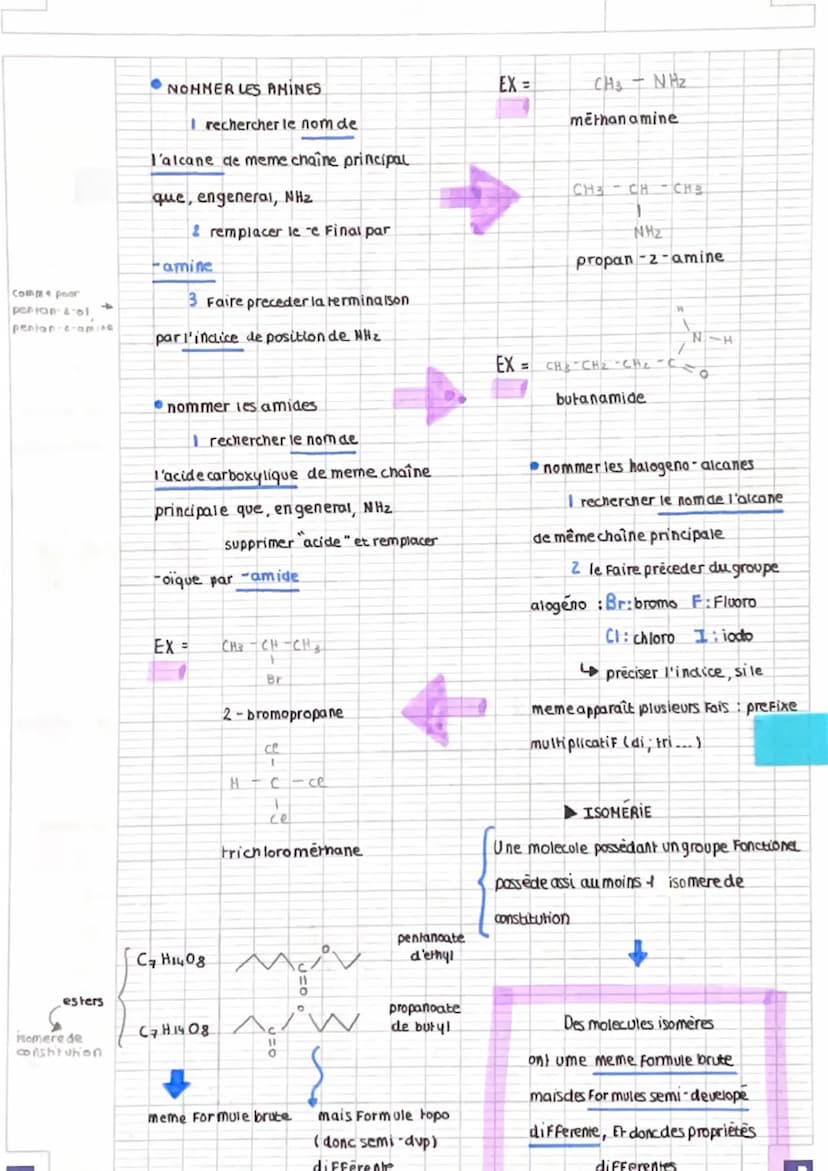 • NOMMER LES AMINES
1 rechercher le nom de
l'alcane de meme chaîne principal
que, en general, NH2
2 remplacer le -e Final par
-amine
3 Faire preceder la terminaison
par l'indice de position de NH2
comme pour
pentan-2-ol →
pentan-2-amine
EX =
CH3 - NH2
méthanamine
CH3 - CH - CH3
NH2
propan-2-amine
• nommer les amides
1 rechercher le nom de
l'acide carboxylique de meme chaîne
principale que, en general, NH2
supprimer "acide" et remplacer
-oïque par -amide
EX =
H
N - H
CH3-CH2-CH2-C
O
butanamide
• nommer les halogeno-alcanes
1 rechercher le nom de l'alcane
de même chaîne principale
2 le Faire précéder du groupe
alogéno : Br: bromo F: Fluoro
Cl: chloro I: iodo
↳ préciser l'indice, si le
meme apparaît plusieurs Fois : preFixe
multiplicatiF (di; tri...)
EX =
CH3 - CH - CH3
Br
2-bromopropane
Cl
H - C - Cl
Cl
trichlorométhane
▶ ISOMÉRIE
Une molecule possédant un groupe Fonctionel
possède assi au moins 1 isomere de
constitution
esters
isomere de
constitution
C7H14O8
O
C
O
pentanoate
d'ethyl
C7H14O8
O
C
O
propanoate
de butyl
meme Formule brute
mais Formule topo
(donc semi-dvp)
diFFérente
Des molecules isomères
ont ume meme Formule brute
mais des Formules semi-developé
diFFerente, Et donc des propriétés
diFFerentes